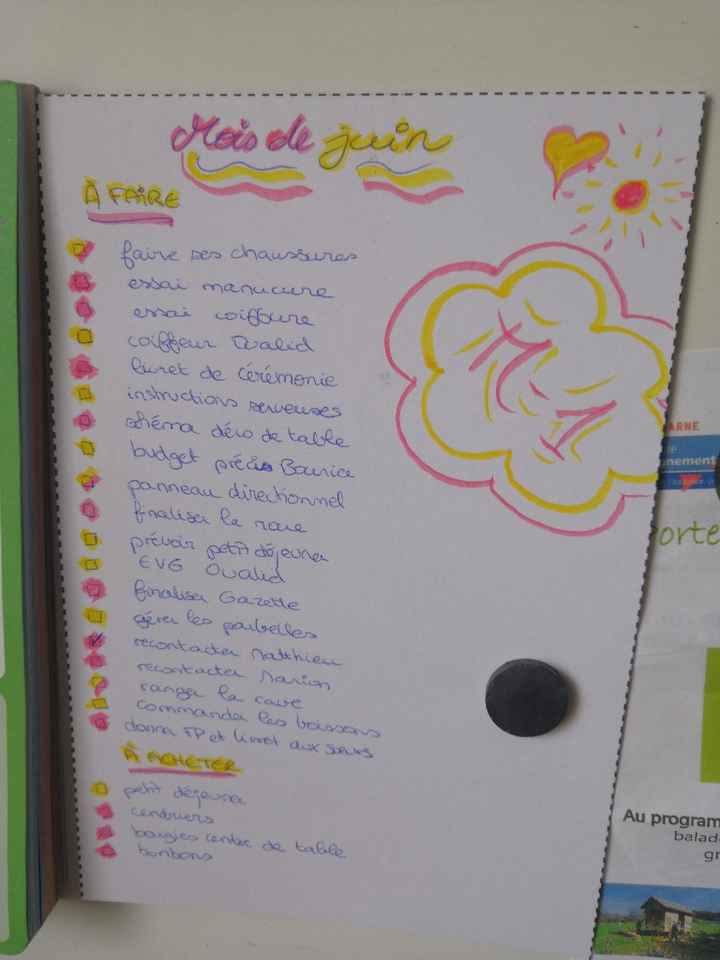 Mois de juin
À FAIRE
faire ses chaussures
essai manucure
essai coiffure
coiffeur Oualid
livret de cérémonie
instructions serveuses
schéma déco de table
budget précis Bounice
panneau directionnel
finaliser la roue
prévoir petit déjeuner
EVG Oualid
finaliser Gazette
gérer les poubelles
recontacter Matthieu
recontacter Marion
ranger la cave
commander les boissons
donner TP et livret aux sœurs
À ACHETER
petit déjeuner
cendriers
bougies centre de table
bonbons
ARNE
nement
orte
Au program
balad
gr